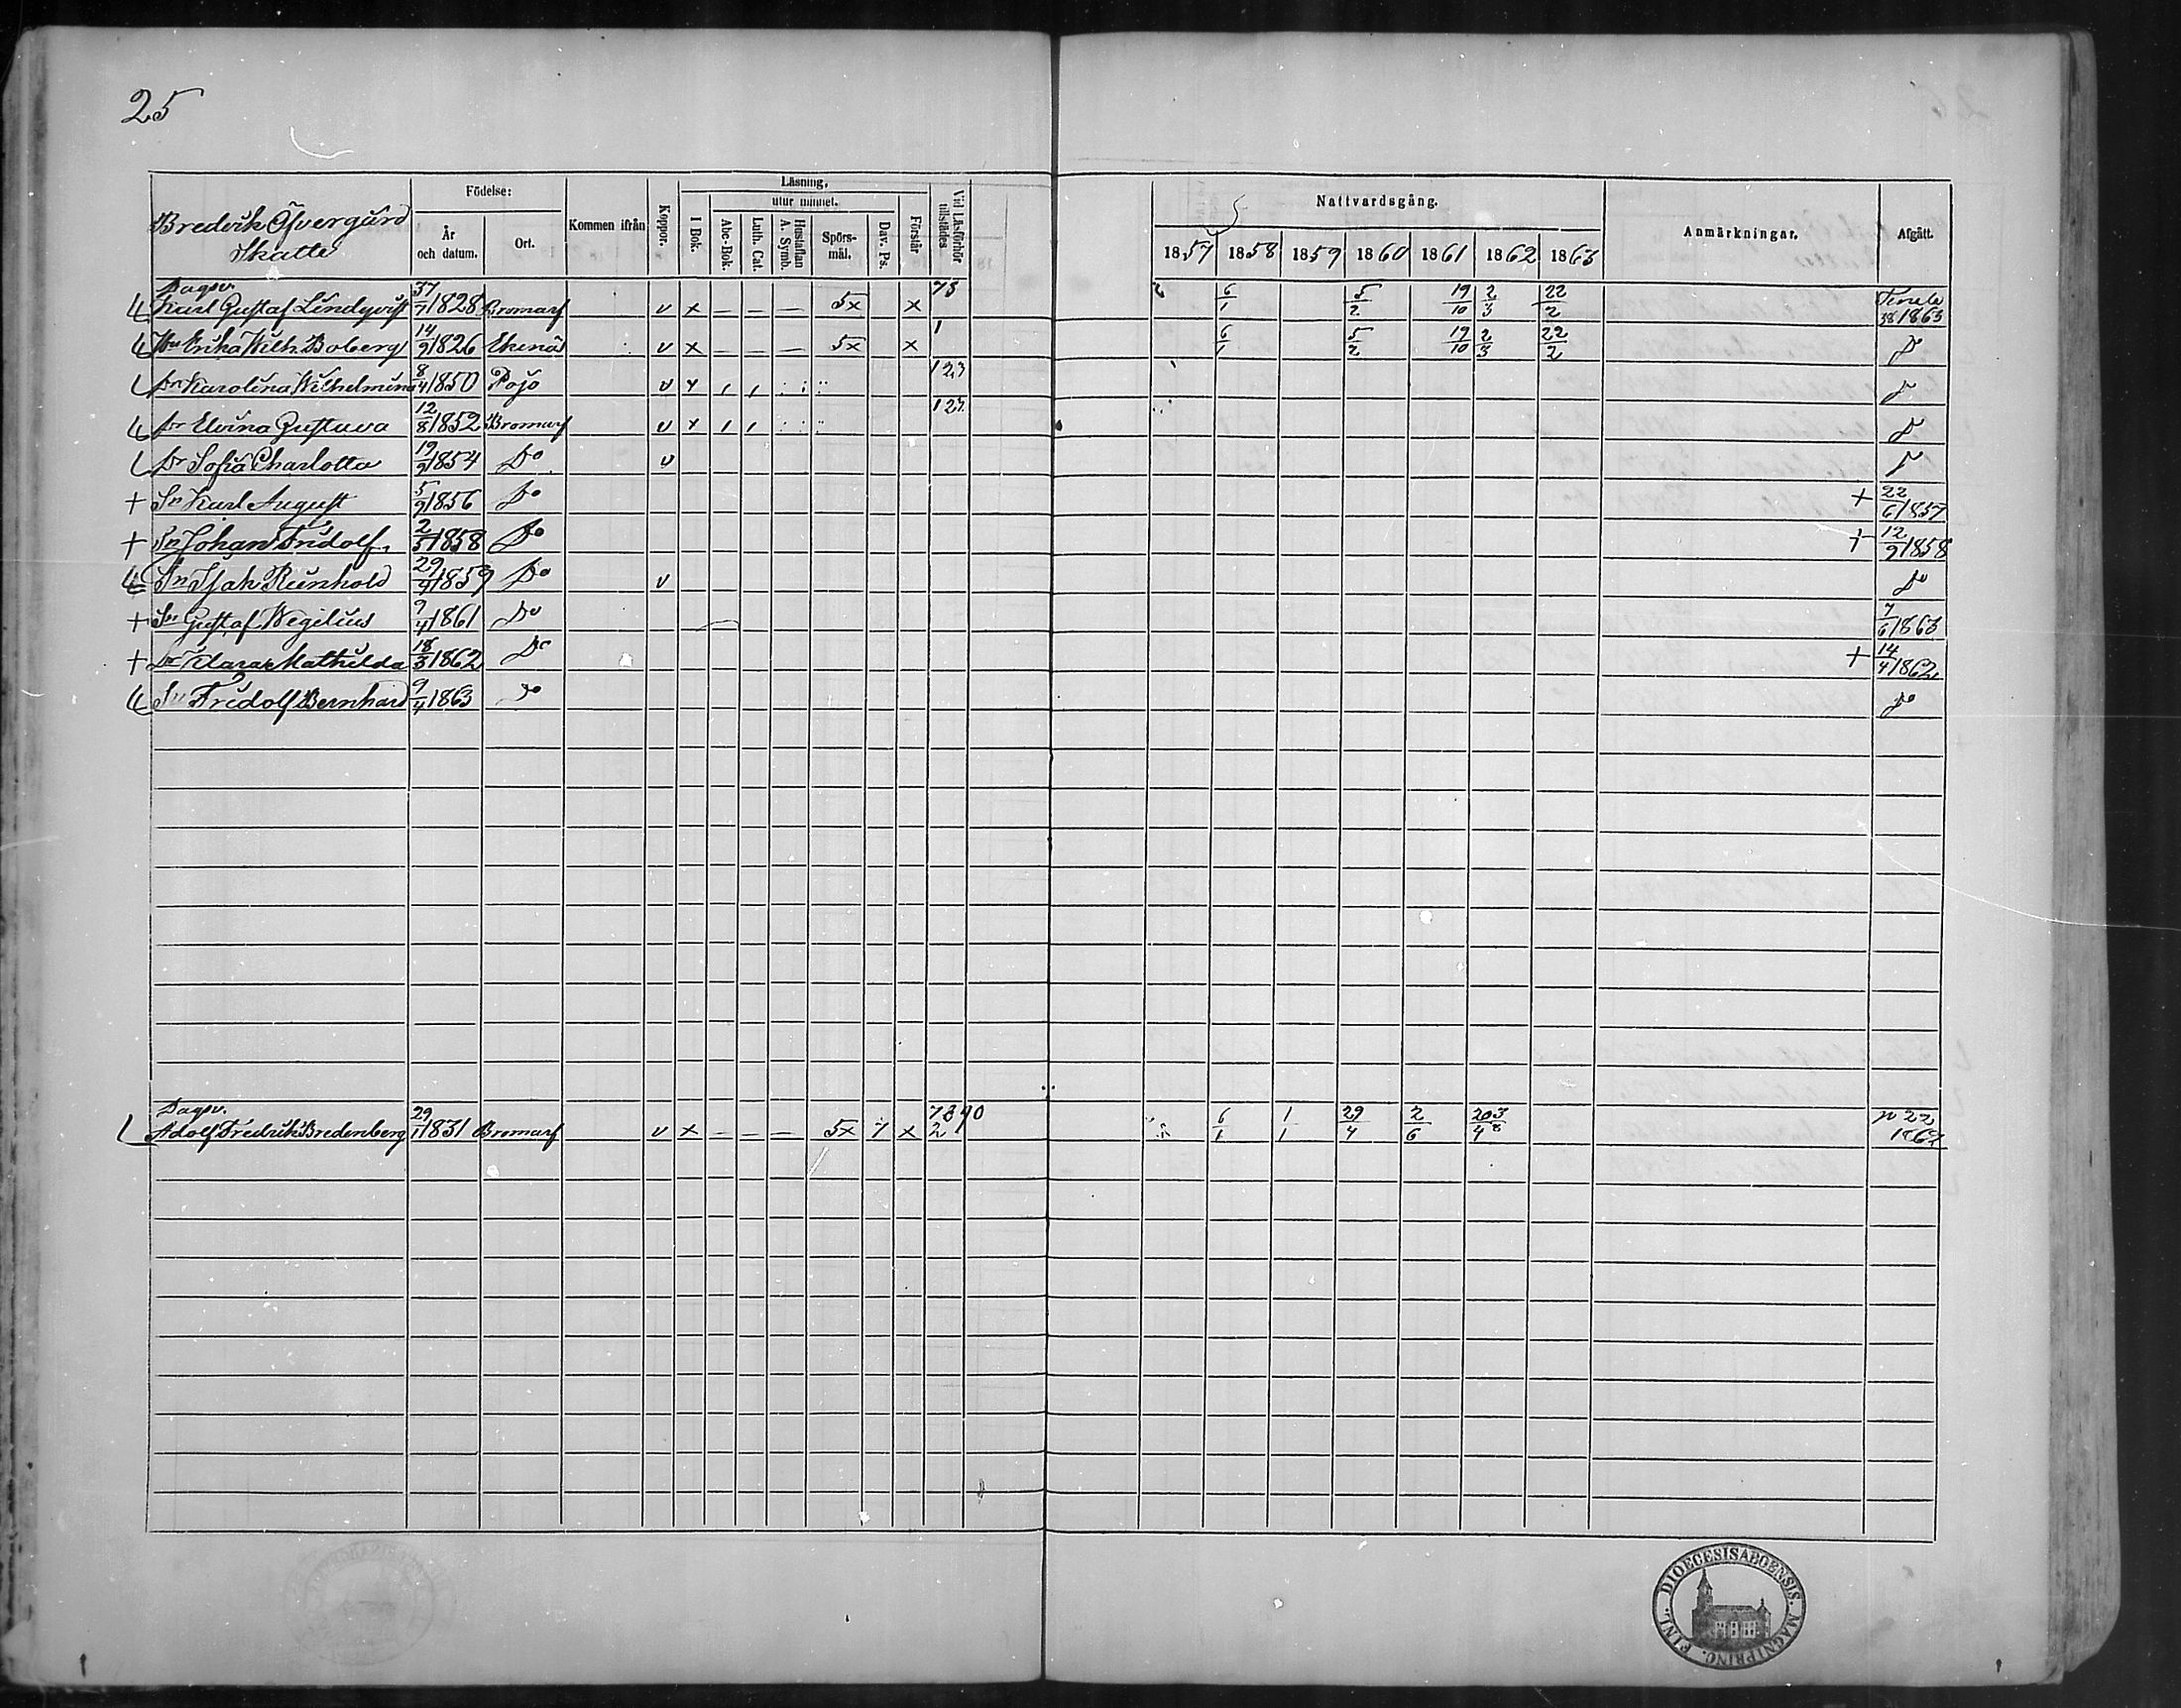 25
Bredvik Öfvergård
Skatte
Födelse:
År och datum.
Ort.
Kommen ifrån
Koppor.
Läsning,
utur minnet.
I Bok.
Abc-Bok.
Luth. Cat.
Hustaflan A. Symb.
Spörs-mål.
Dav. Ps.
Förstår
Vid Läsförhör tillstädes
Nattvardsgång.
1857 1858 1859 1860 1861 1862 1863
Anmärkningar.
Afgått.
Dagsv.
Karl Gustaf Lindqvist 1828 Bromarf v x — — — 5x x 73 6/1 5/2 19/10 2/3 22/2 38 1863
Hu Erika Wilh. Boberg 14/9 1826 Ekenäs v x — — — 5x x 1 6/1 5/2 19/10 2/3 22/2
Dr Karolina Wilhelmina 8/4 1850 Pojo v x 123
Dr Elvina Gustava 12/8 1852 Bromarf v x
Dr Sofia Charlotta 19/9 1854 Do v
+ Sn Karl August 5/9 1856 Do + 22/6 1857
+ Sn Johan Fridolf 1858 Do + 12/9 1858
Sn Isak Reinhold 29/4 1859 Do v Do
+ Sn Gustaf Wegelius 9/4 1861 Do 7/6 1863
+ Dr Klara Mathilda 18/3 1862 Do + 14/4 1862
Sn Fridolf Bernhard 9/4 1863 Do Do
Dagsv.
Adolf Fredrik Bredenberg 29/1 1831 Bromarf v x — — — 5x x 2 6/1 1/1 29/4 2/6 20/4 3/8 p 22 1862
FINL. DIOECESIS ABOENSIS. MAGNI PRINC.